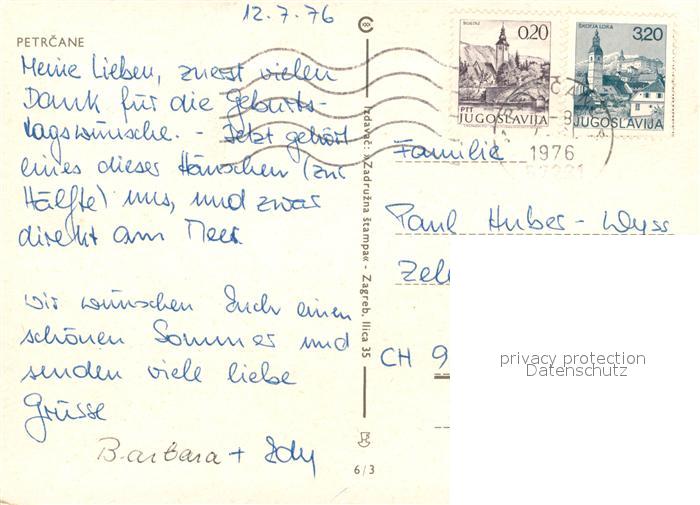 12.7.76
PETRČANE
Meine Lieben, zuerst vielen
Dank für die Geburts-
tagswünsche. - Jetzt gehört
eines dieser Häuschen (zur
Hälfte) uns, und zwar
direkt am Meer.
Wir wünschen Euch einen
schönen Sommer und
senden viele liebe
Grüsse
Barbara + Edy
Izdavač: »Zadružna štampa« - Zagreb, Ilica 35
6/3
0,20
PTT
JUGOSLAVIJA
ŠKOFJA LOKA
3,20
JUGOSLAVIJA
1976
Familie
Paul Huber-Wyss
CH 9
privacy protection
Datenschutz